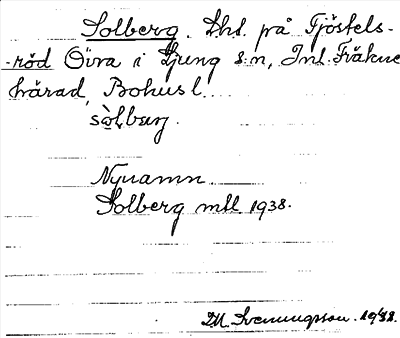 Solberg. Lhs. på Tjöstels-
-röd Övra i Ljung s:n, Inl. Fräkne
härad, Bohusl.
sòlbærj.
Nynamn
Solberg mtl. 1938.
M. Svenungsson. 1938.